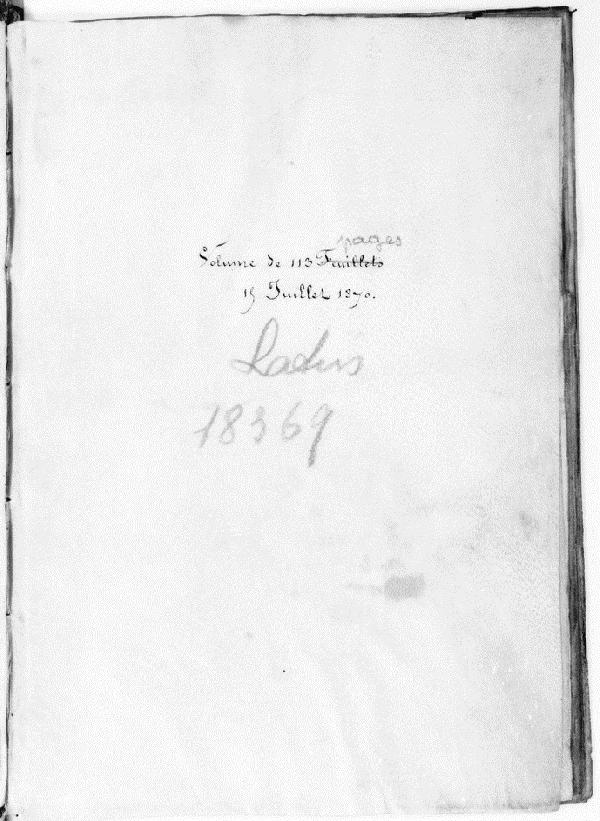 pages
Volume de 113 Feuillets
19 Juillet 1870.
Latin
18369